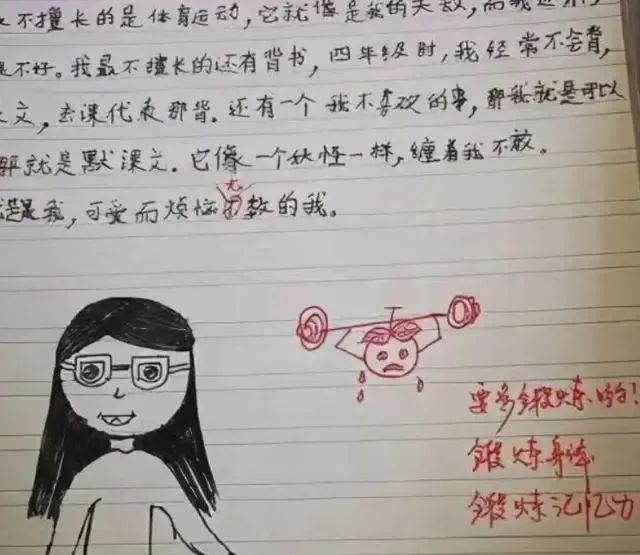 不擅长的是体育运动，它就像是我的天敌，而我
不好。我最不擅长的还有背书，四年级时，我经常不会背，
文，去课代表那背.还有一个我不喜欢的事，那我就是可以
就是默课文.它像一个妖怪一样，缠着我不放。
是我，可爱而烦恼无数的我。
要多锻炼哟！
锻炼身体
锻炼记忆力